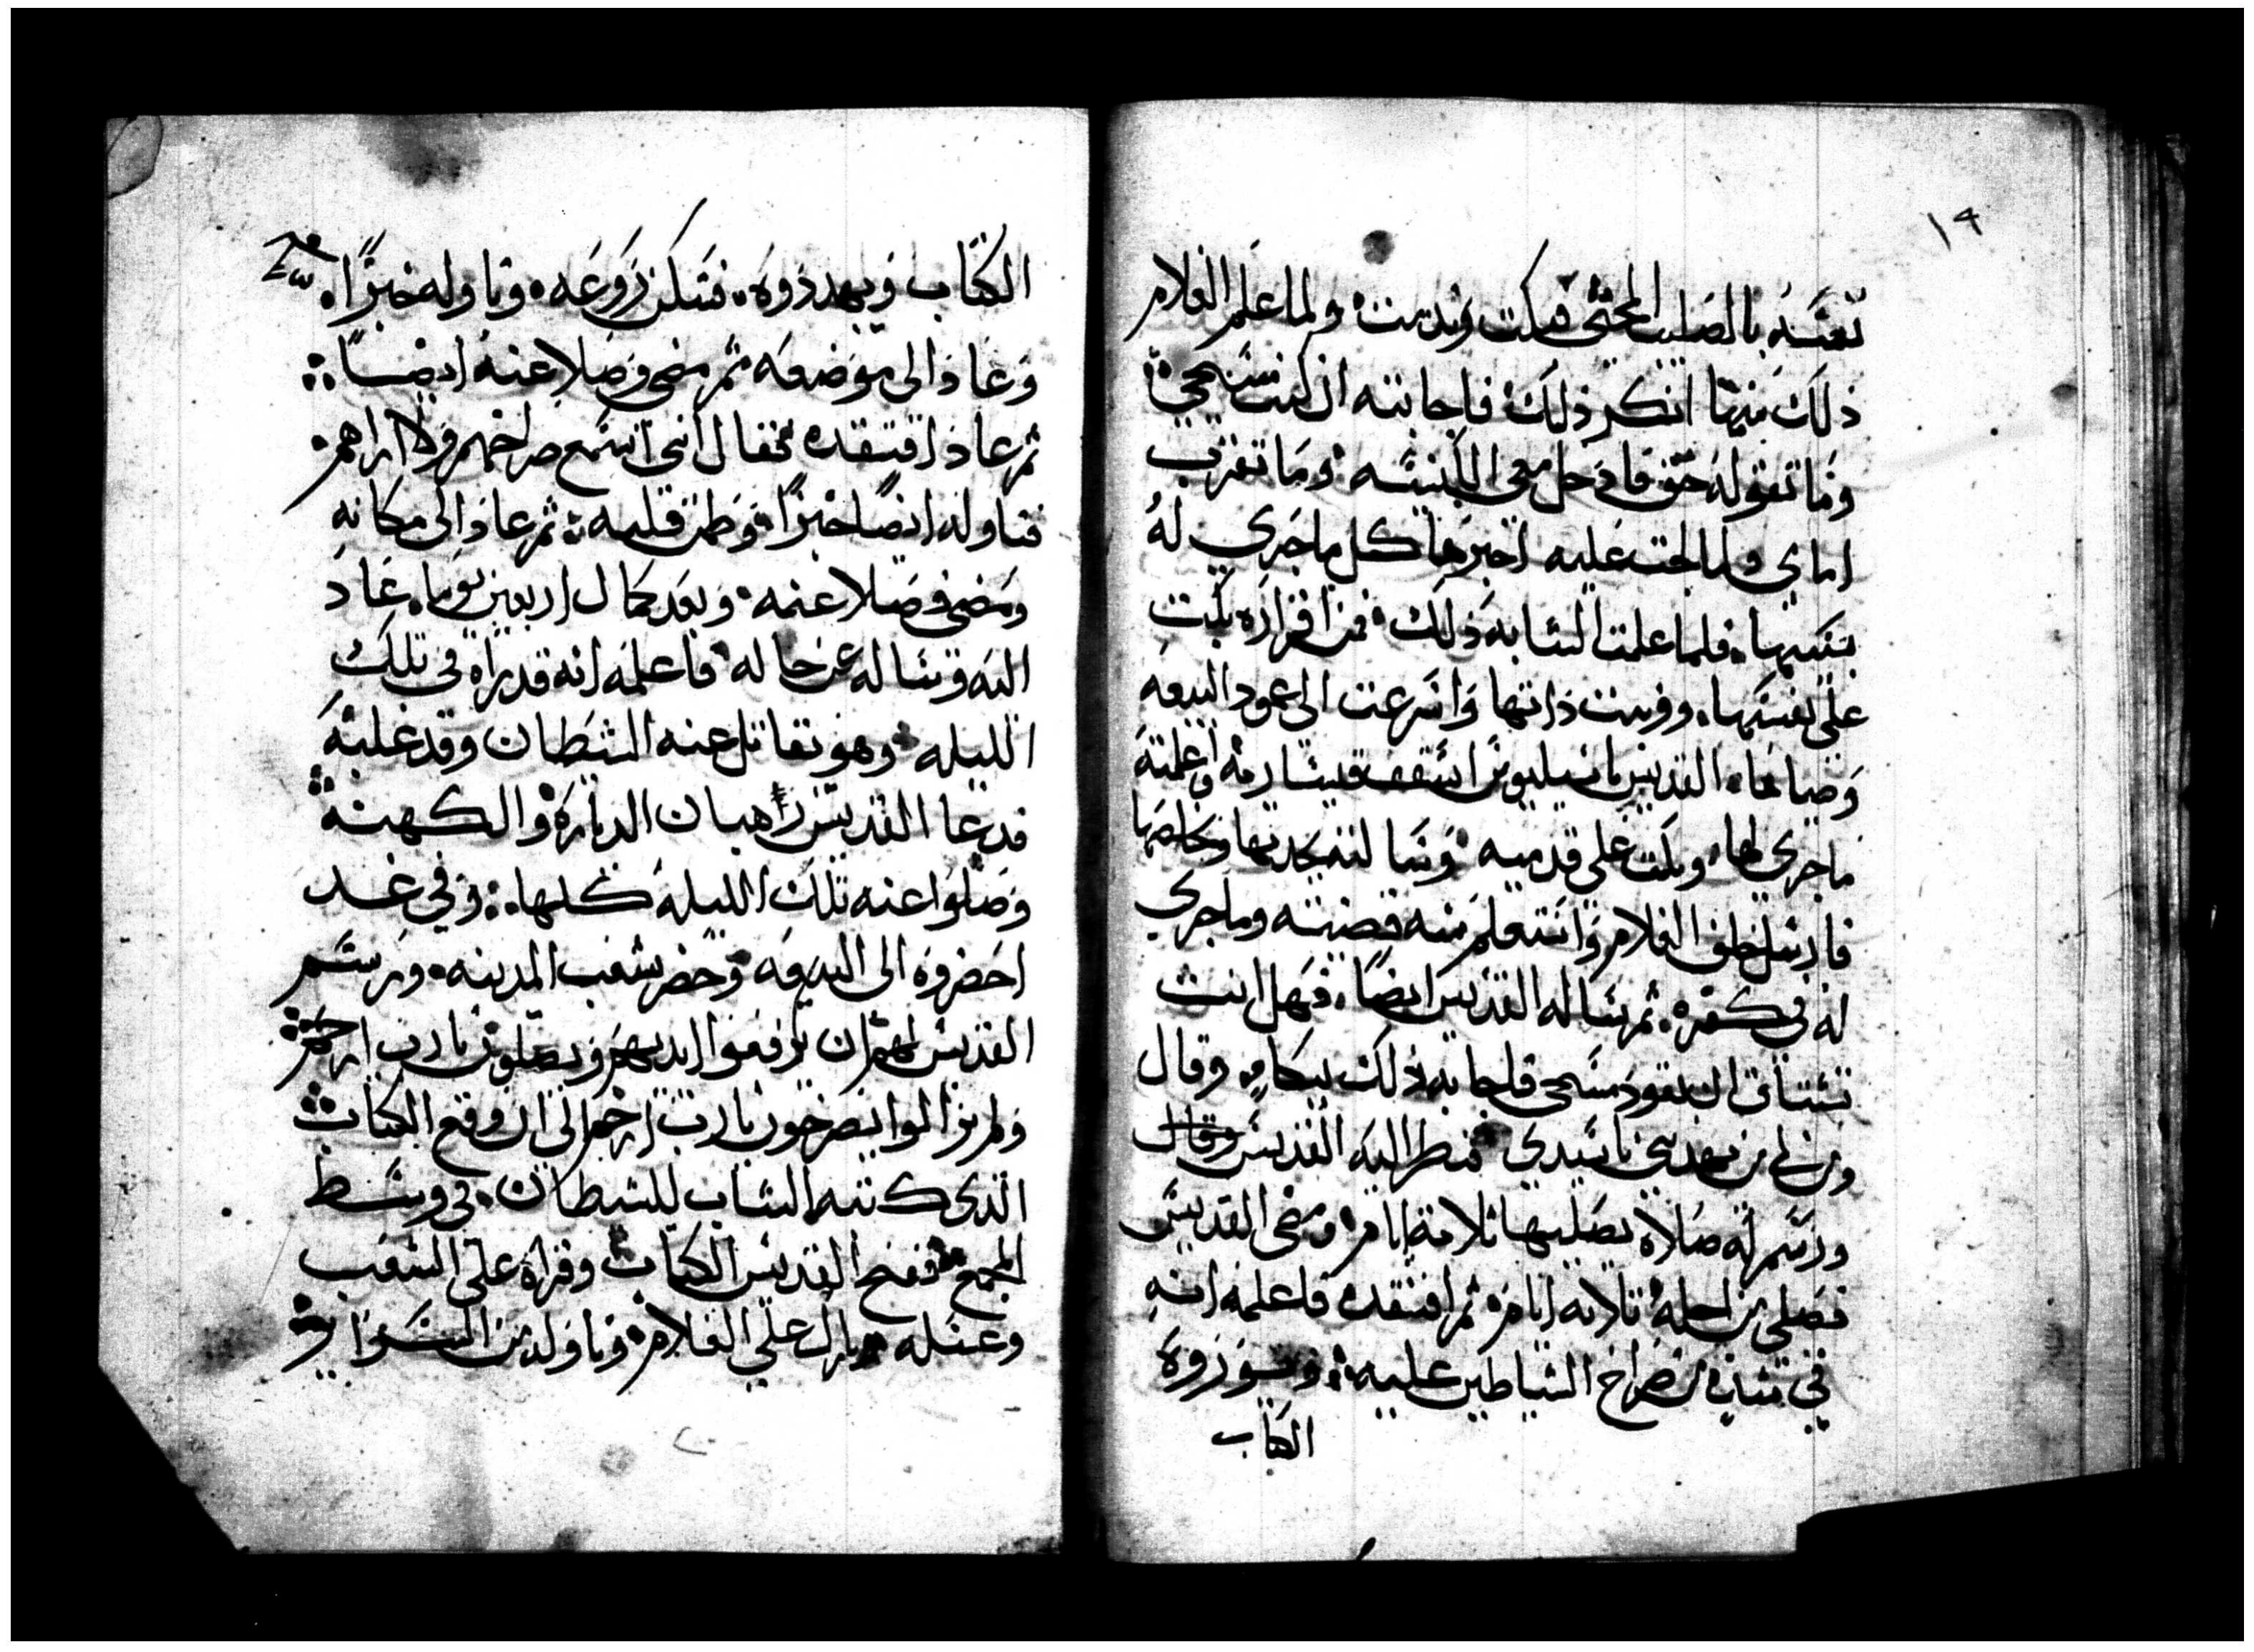 ١٩
نفسه بالصليب المحيي فبكت وندبت ولما علم الغلام
ذلك منها انكر ذلك فاجابته ان كنت مسيحي
وما تقوله حق فادخل معي الكنيسه وما تقرب
امامي ولما لحت عليه اخبرها كل ما جري له
بتكسيها فلما علمت الشابه ذلك من اقراره بكت
على نفسها ووبنت ذاتها واسرعت الى عمود البيعه
وضياها القديس باسيليوس اسقف قيساريه واعلمته
ماجرى لها وبكت على قدميه وسالته نجدتها وخلاصها
فارسل خلف الغلام واستعلم منه قضيته وماجري
له في كفره ثم ساله القديس ايضا فهل انت
تشتاق ان تعود مسيحي فاجابه ذلك ببكا وقال
ومن لي من يهديني ياسيدي فنظر اليه القديس وقال
ورسم له صلاه يصليها ثلاثة ايام ومضى القديس
فصلى من اجله ثلاثه ايام ثم افتقده فاعلمه انه
في شده من صراخ الشياطين عليه ويوزروه
الكتاب
الكتاب ويهددوه فسكن روعه وناوله خبزا
وعاد الى موضعه ثم مضى وصلا عنه ايضا
ثم عاد افتقده فقال انني اسمع صراخهم ولا اراهم
فناوله ايضا خبزا وطمن قلبه ثم عاد الى مكانه
ومضى وصلا عنه وبعد كمال اربعين يوما عاد
اليه وساله عن حاله فاعلمه انه قد راه في تلك
الليله وهو يقاتل عنه الشيطان وقد غلبه
فدعا القديس رهبان الدياره والكهنة
وصلوا عنه تلك الليله كلها وفي غد
احضروه الى البيعه وحضر شعب المدينه ورسم
القديس لهم ان يرفعوا ايديهم ويصلون يارب ارحم
ولم يزالوا يصرخون يارب ارحم الى ان وقع الكتاب
الذي كتبه الشاب للشيطان في وسط
المجمع ففتح القديس الكتاب وقراه على الشعب
وغسله وبارك علي الغلام وناوله من السراير